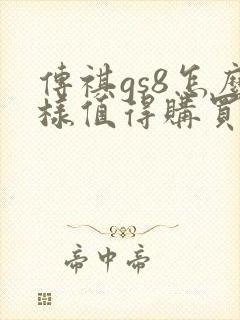 傳祺gs8怎麼
樣值得購買
帝中帝